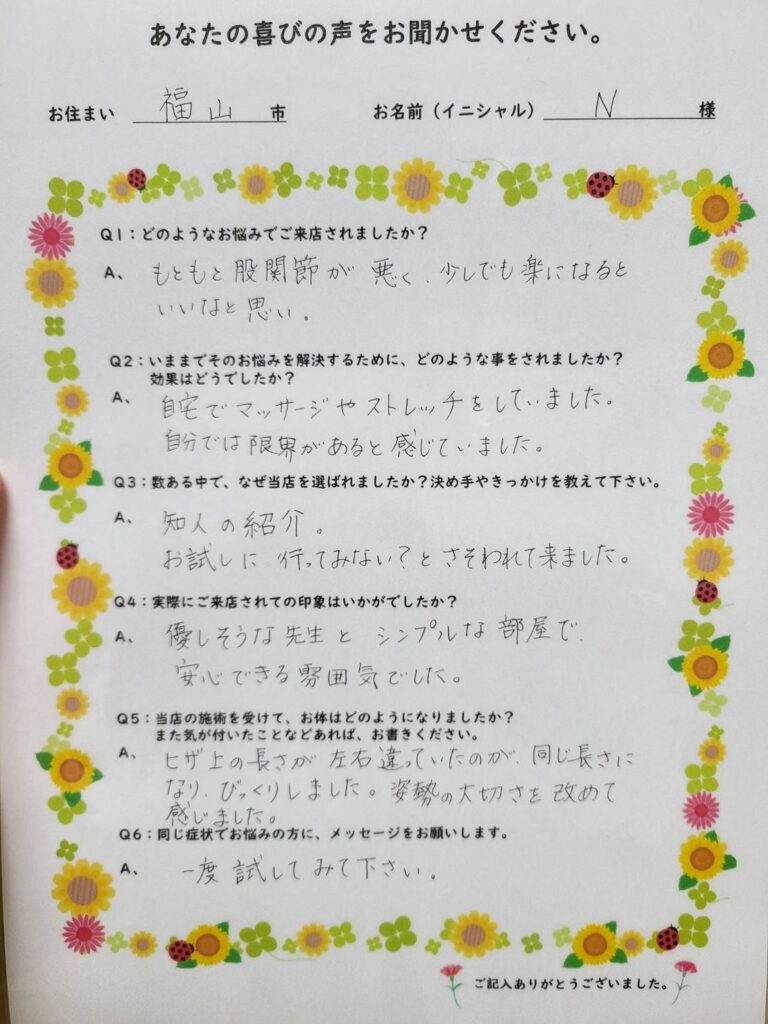 あなたの喜びの声をお聞かせください。
お住まい 福山 市 お名前（イニシャル） N 様
Q1：どのようなお悩みでご来店されましたか？
A、 もともと股関節が悪く、少しでも楽になると
いいなと思い。
Q2：いままでそのお悩みを解決するために、どのような事をされましたか？
効果はどうでしたか？
A、 自宅でマッサージやストレッチをしていました。
自分では限界があると感じていました。
Q3：数ある中で、なぜ当店を選ばれましたか？決め手やきっかけを教えて下さい。
A、 知人の紹介。
お試しに行ってみない？とさそわれて来ました。
Q4：実際にご来店されての印象はいかがでしたか？
A、 優しそうな先生とシンプルな部屋で、
安心できる雰囲気でした。
Q5：当店の施術を受けて、お体はどのようになりましたか？
また気が付いたことなどあれば、お書きください。
A、 ヒザ上の長さが左右違っていたのが、同じ長さに
なり、びっくりしました。姿勢の大切さを改めて
感じました。
Q6：同じ症状でお悩みの方に、メッセージをお願いします。
A、 一度試してみて下さい。
ご記入ありがとうございました。